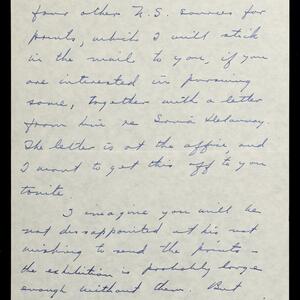 four other N.S. sources for
prints, which I will stick
in the mail to you, if you
are interested in pursuing
some, together with a letter
from him re Sonia Delaunay.
The letter is at the office, and
I want to get this off to you
tonite.
I imagine you will be
not disappointed at his not
wishing to send the prints –
the exhibition is probably large
enough without them. But